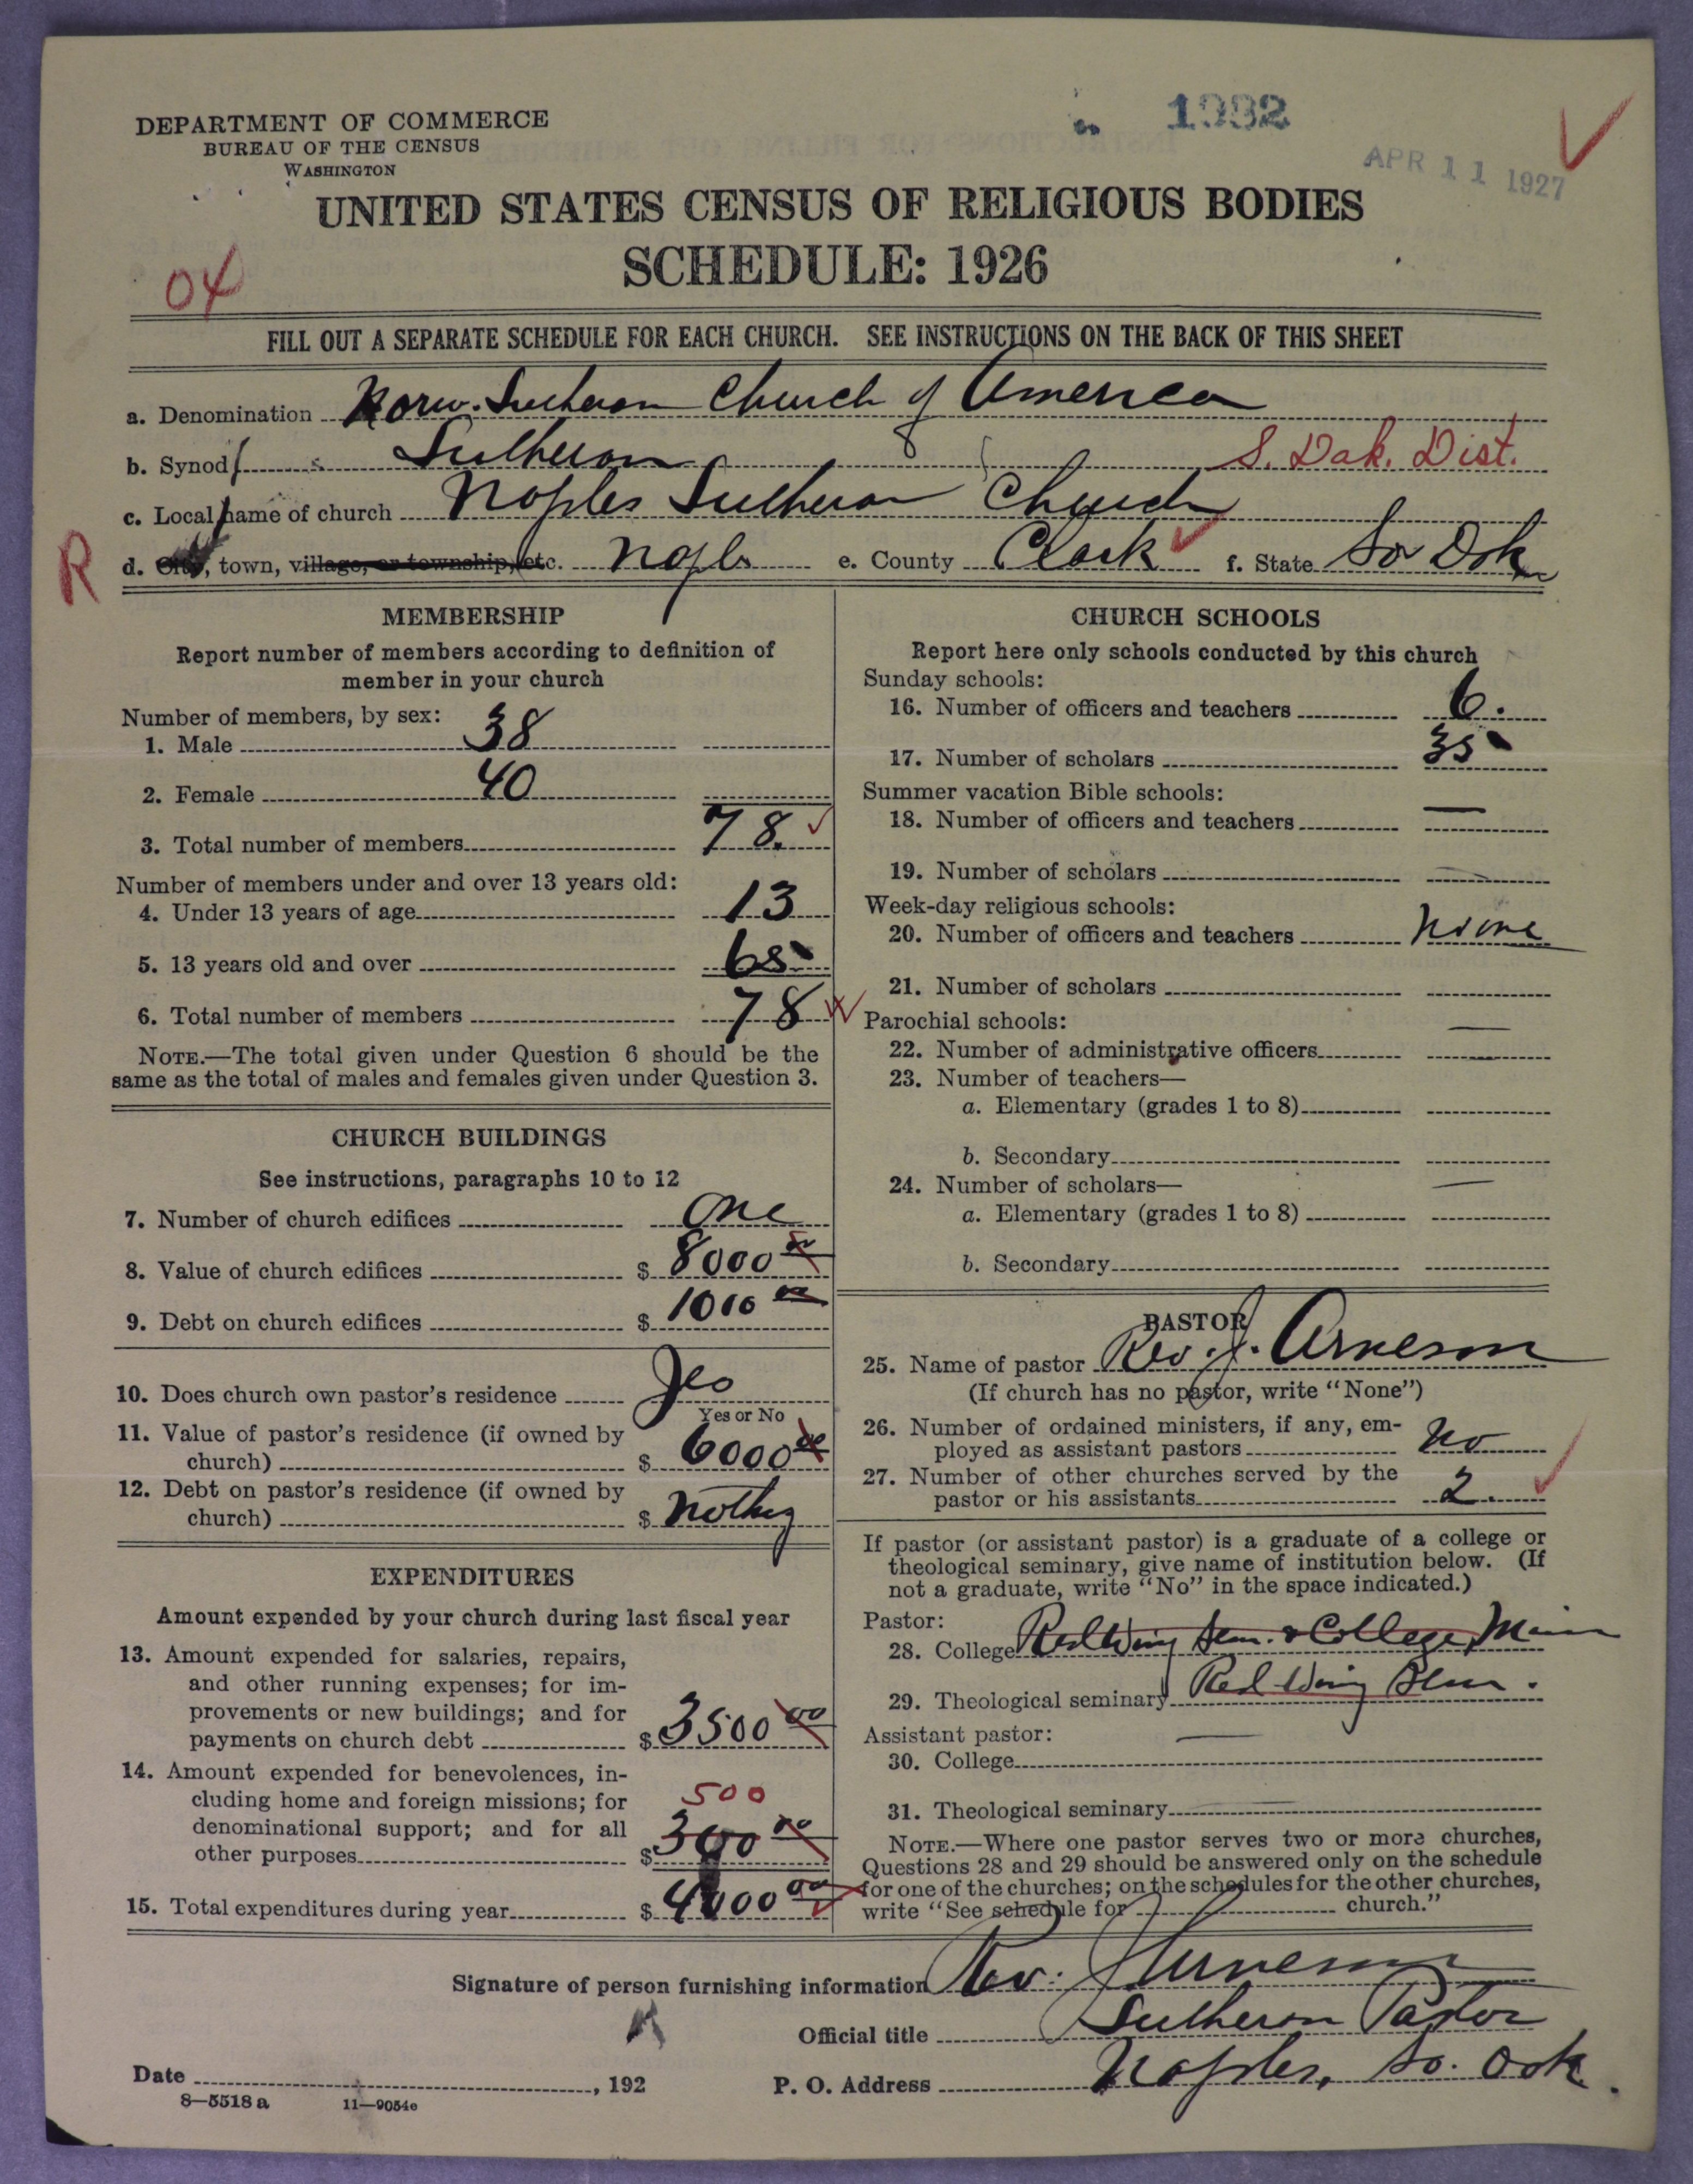 1932
APR 11 1927
DEPARTMENT OF COMMERCE
BUREAU OF THE CENSUS
WASHINGTON
UNITED STATES CENSUS OF RELIGIOUS BODIES
SCHEDULE: 1926
04
FILL OUT A SEPARATE SCHEDULE FOR EACH CHURCH. SEE INSTRUCTIONS ON THE BACK OF THIS SHEET
a. Denomination Norw. Lutheran Church of America
b. Synod Lutheran S. Dak. Dist.
c. Local name of church Naples Lutheran Church
R
d. City, town, village, or township, etc. Naples e. County Clark f. State So Dak
MEMBERSHIP
Report number of members according to definition of
member in your church
Number of members, by sex:
1. Male 38
2. Female 40
3. Total number of members 78.
Number of members under and over 13 years old:
4. Under 13 years of age 13
5. 13 years old and over 65
6. Total number of members 78
NOTE.—The total given under Question 6 should be the
same as the total of males and females given under Question 3.
CHURCH BUILDINGS
See instructions, paragraphs 10 to 12
7. Number of church edifices One
8. Value of church edifices $ 8000 00
9. Debt on church edifices $ 1000 00
10. Does church own pastor's residence Yes
Yes or No
11. Value of pastor's residence (if owned by
church) $ 6000 00
12. Debt on pastor's residence (if owned by
church) $ nothing
EXPENDITURES
Amount expended by your church during last fiscal year
13. Amount expended for salaries, repairs,
and other running expenses; for im-
provements or new buildings; and for
payments on church debt $ 3500 00
14. Amount expended for benevolences, in-
cluding home and foreign missions; for 500
denominational support; and for all
other purposes $ 300 00
15. Total expenditures during year $ 4000 00
CHURCH SCHOOLS
Report here only schools conducted by this church
Sunday schools:
16. Number of officers and teachers 6.
17. Number of scholars 35
Summer vacation Bible schools:
18. Number of officers and teachers —
19. Number of scholars —
Week-day religious schools:
20. Number of officers and teachers None
21. Number of scholars
Parochial schools:
22. Number of administrative officers —
23. Number of teachers—
a. Elementary (grades 1 to 8)
b. Secondary
24. Number of scholars— —
a. Elementary (grades 1 to 8)
b. Secondary
PASTOR
25. Name of pastor Rev. J. Arneson
(If church has no pastor, write "None")
26. Number of ordained ministers, if any, em-
ployed as assistant pastors No
27. Number of other churches served by the
pastor or his assistants 2.
If pastor (or assistant pastor) is a graduate of a college or
theological seminary, give name of institution below. (If
not a graduate, write "No" in the space indicated.)
Pastor:
28. College Red Wing Sem. & College, Minn
29. Theological seminary Red Wing Sem.
Assistant pastor: —
30. College
31. Theological seminary
NOTE.—Where one pastor serves two or more churches,
Questions 28 and 29 should be answered only on the schedule
for one of the churches; on the schedules for the other churches,
write "See schedule for church."
Signature of person furnishing information Rev. J Arneson
Official title Lutheran Pastor
Date , 192
P. O. Address Naples, So. Dak.
8—5518 a 11—9054e